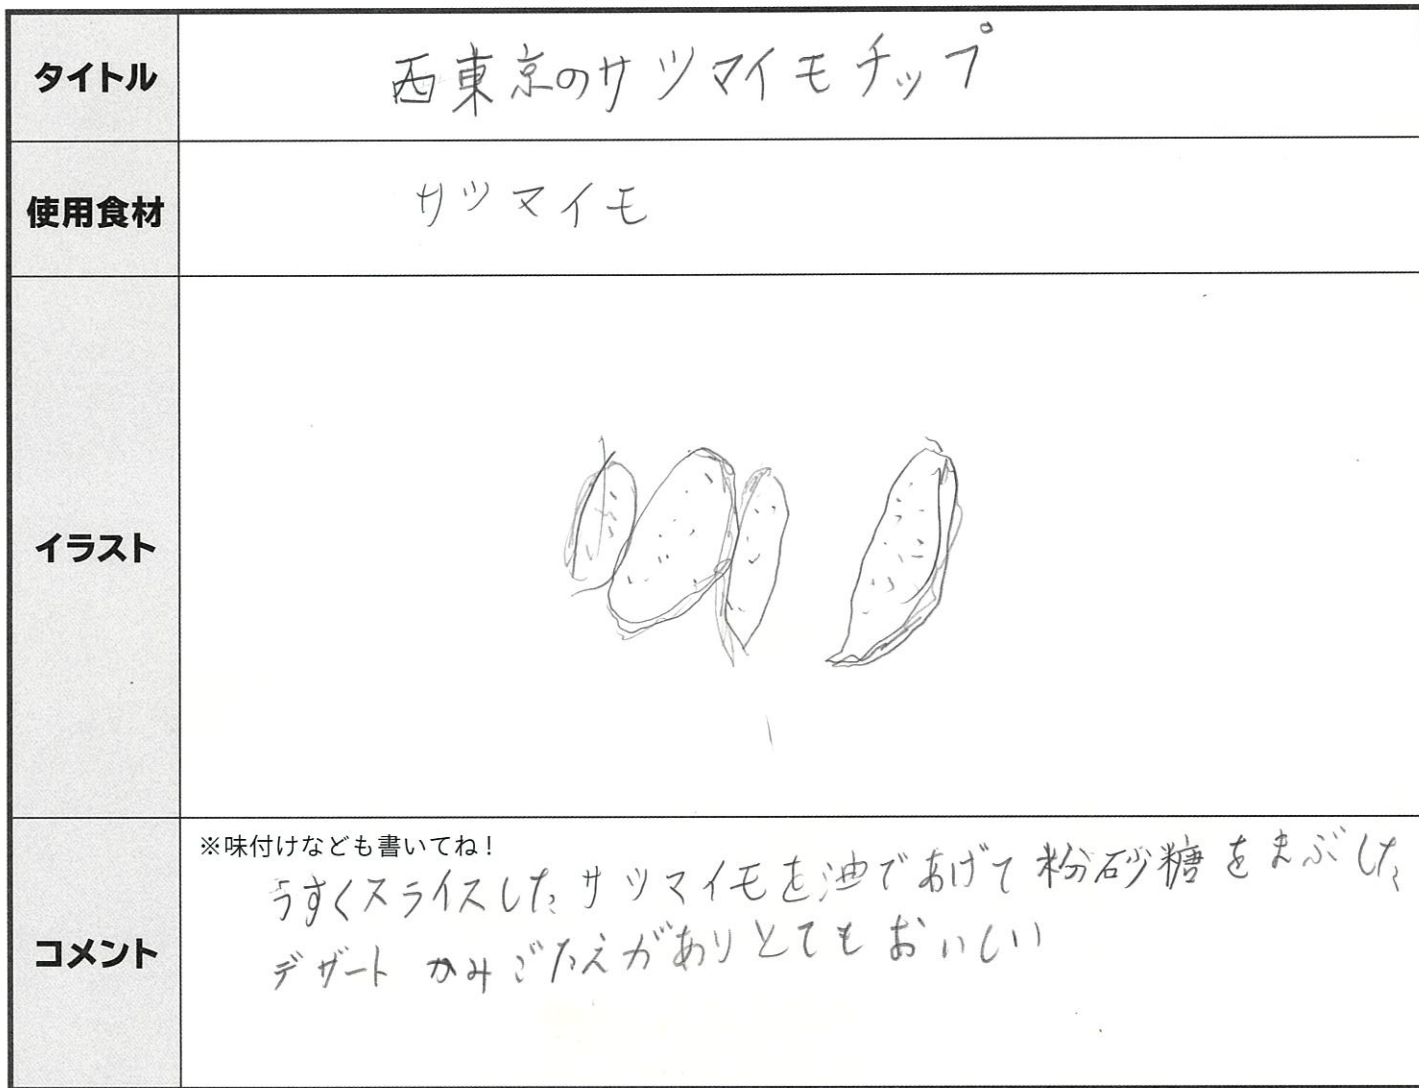 タイトル
西東京のサツマイモチップ
使用食材
サツマイモ
イラスト
コメント
※味付けなども書いてね!
うすくスライスしたサツマイモを油であげて粉砂糖をまぶした
デザート かみごたえがありとてもおいしい